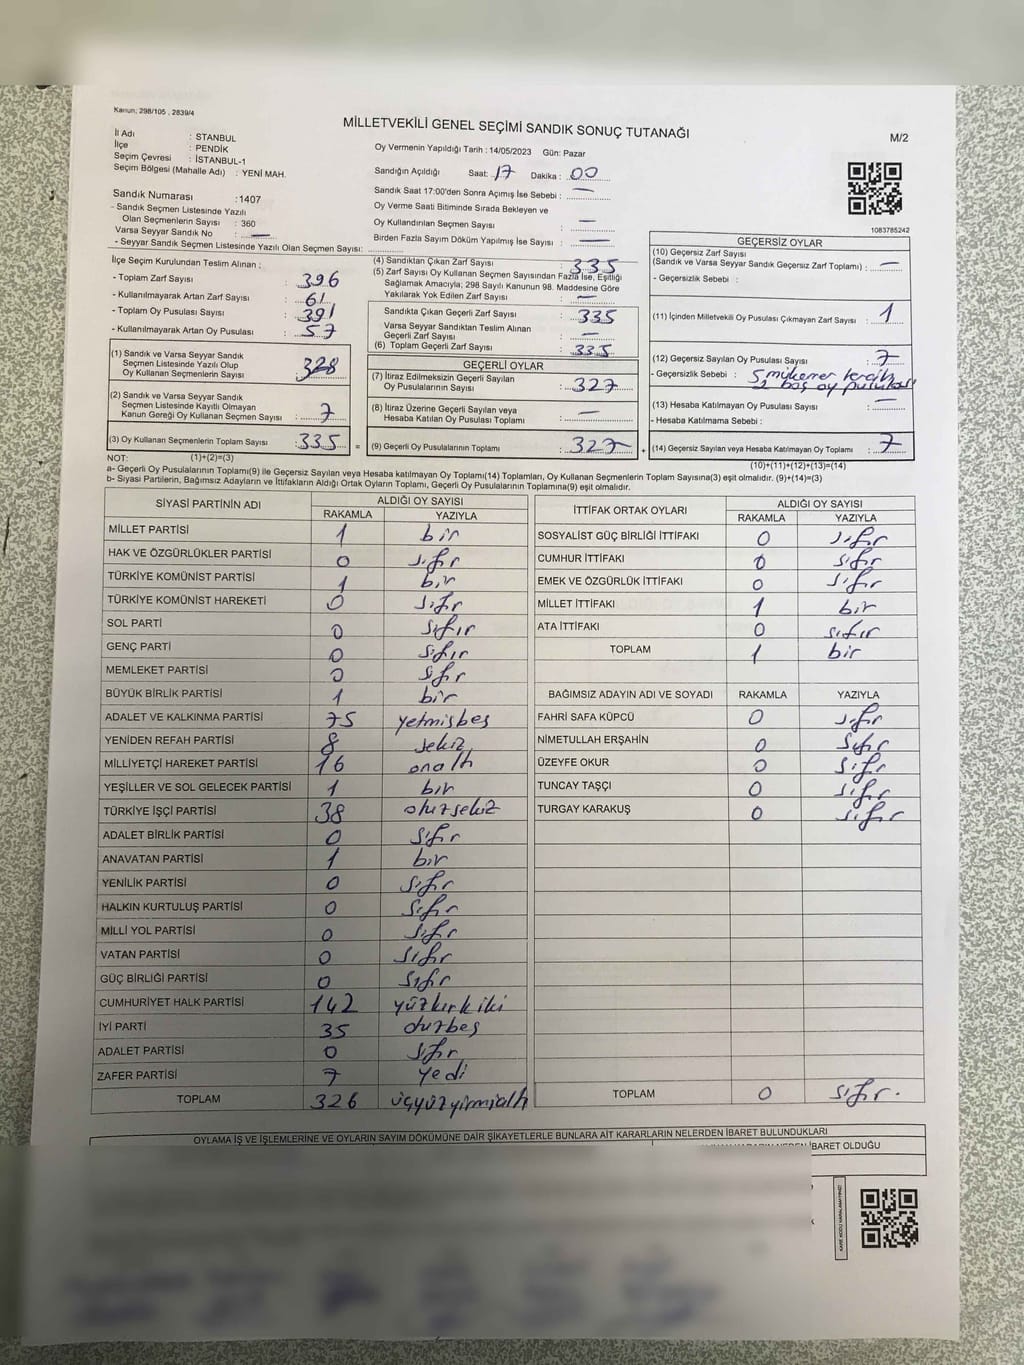 Kanun; 298/105 , 2839/4
MİLLETVEKİLİ GENEL SEÇİMİ SANDIK SONUÇ TUTANAĞI
M/2
İl Adı : İSTANBUL
İlçe : PENDİK
Seçim Çevresi : İSTANBUL-1
Seçim Bölgesi (Mahalle Adı) : YENİ MAH.
Oy Vermenin Yapıldığı Tarih : 14/05/2023 Gün: Pazar
Sandığın Açıldığı Saat: 17 Dakika : 00
Sandık Saat 17:00'den Sonra Açımış İse Sebebi : —
Oy Verme Saati Bitiminde Sırada Bekleyen ve
Oy Kullandırılan Seçmen Sayısı : —
Birden Fazla Sayım Döküm Yapılmış İse Sayısı : —
1083785242
Sandık Numarası :1407
- Sandık Seçmen Listesinde Yazılı
Olan Seçmenlerin Sayısı : 360
Varsa Seyyar Sandık No : —
- Seyyar Sandık Seçmen Listesinde Yazılı Olan Seçmen Sayısı:
İlçe Seçim Kurulundan Teslim Alınan ;
- Toplam Zarf Sayısı : 396
- Kullanılmayarak Artan Zarf Sayısı : 61
- Toplam Oy Pusulası Sayısı : 391
- Kullanılmayarak Artan Oy Pusulası : 57
(1) Sandık ve Varsa Seyyar Sandık
Seçmen Listesinde Yazılı Olup
Oy Kullanan Seçmenlerin Sayısı : 328
(2) Sandık ve Varsa Seyyar Sandık
Seçmen Listesinde Kayıtlı Olmayan
Kanun Gereği Oy Kullanan Seçmen Sayısı : 7
(3) Oy Kullanan Seçmenlerin Toplam Sayısı : 335 =
(4) Sandıktan Çıkan Zarf Sayısı : 335
(5) Zarf Sayısı Oy Kullanan Seçmen Sayısından Fazla İse, Eşitliği
Sağlamak Amacıyla; 298 Sayılı Kanunun 98. Maddesine Göre
Yakılarak Yok Edilen Zarf Sayısı : —
Sandıkta Çıkan Geçerli Zarf Sayısı : 335
Varsa Seyyar Sandıktan Teslim Alınan
Geçerli Zarf Sayısı : —
(6) Toplam Geçerli Zarf Sayısı : 335
GEÇERLİ OYLAR
(7) İtiraz Edilmeksizin Geçerli Sayılan
Oy Pusulalarının Sayısı : 327
(8) İtiraz Üzerine Geçerli Sayılan veya
Hesaba Katılan Oy Pusulası Toplamı : —
(9) Geçerli Oy Pusulalarının Toplamı : 327 +
GEÇERSİZ OYLAR
(10) Geçersiz Zarf Sayısı
(Sandık ve Varsa Seyyar Sandık Geçersiz Zarf Toplamı) : —
- Geçersizlik Sebebi :
(11) İçinden Milletvekili Oy Pusulası Çıkmayan Zarf Sayısı : 1
(12) Geçersiz Sayılan Oy Pusulası Sayısı : 7
- Geçersizlik Sebebi : 5 mükerrer tercih
2 boş oy pusulası
(13) Hesaba Katılmayan Oy Pusulası Sayısı : —
- Hesaba Katılmama Sebebi :
(14) Geçersiz Sayılan veya Hesaba Katılmayan Oy Toplamı : 7
NOT: (1)+(2)=(3)
(10)+(11)+(12)+(13)=(14)
a- Geçerli Oy Pusulalarının Toplamı(9) ile Geçersiz Sayılan veya Hesaba katılmayan Oy Toplamı(14) Toplamları, Oy Kullanan Seçmenlerin Toplam Sayısına(3) eşit olmalıdır. (9)+(14)=(3)
b- Siyasi Partilerin, Bağımsız Adayların ve İttifakların Aldığı Ortak Oyların Toplamı, Geçerli Oy Pusulalarının Toplamına(9) eşit olmalıdır.
SİYASİ PARTİNİN ADI ALDIĞI OY SAYISI
RAKAMLA YAZIYLA
MİLLET PARTİSİ 1 bir
HAK VE ÖZGÜRLÜKLER PARTİSİ 0 sıfır
TÜRKİYE KOMÜNİST PARTİSİ 1 bir
TÜRKİYE KOMÜNİST HAREKETİ 0 sıfır
SOL PARTİ 0 sıfır
GENÇ PARTİ 0 sıfır
MEMLEKET PARTİSİ 0 sıfır
BÜYÜK BİRLİK PARTİSİ 1 bir
ADALET VE KALKINMA PARTİSİ 75 yetmişbeş
YENİDEN REFAH PARTİSİ 8 sekiz
MİLLİYETÇİ HAREKET PARTİSİ 16 onaltı
YEŞİLLER VE SOL GELECEK PARTİSİ 1 bir
TÜRKİYE İŞÇİ PARTİSİ 38 otuzsekiz
ADALET BİRLİK PARTİSİ 0 sıfır
ANAVATAN PARTİSİ 1 bir
YENİLİK PARTİSİ 0 sıfır
HALKIN KURTULUŞ PARTİSİ 0 sıfır
MİLLİ YOL PARTİSİ 0 sıfır
VATAN PARTİSİ 0 sıfır
GÜÇ BİRLİĞİ PARTİSİ 0 sıfır
CUMHURİYET HALK PARTİSİ 142 yüzkırkiki
İYİ PARTİ 35 otuzbeş
ADALET PARTİSİ 0 sıfır
ZAFER PARTİSİ 7 yedi
TOPLAM 326 üçyüzyirmialtı
İTTİFAK ORTAK OYLARI ALDIĞI OY SAYISI
RAKAMLA YAZIYLA
SOSYALİST GÜÇ BİRLİĞİ İTTİFAKI 0 sıfır
CUMHUR İTTİFAKI 0 sıfır
EMEK VE ÖZGÜRLÜK İTTİFAKI 0 sıfır
MİLLET İTTİFAKI 1 bir
ATA İTTİFAKI 0 sıfır
TOPLAM 1 bir
BAĞIMSIZ ADAYIN ADI VE SOYADI RAKAMLA YAZIYLA
FAHRİ SAFA KÜPCÜ 0 sıfır
NİMETULLAH ERŞAHİN 0 sıfır
ÜZEYFE OKUR 0 sıfır
TUNCAY TAŞÇI 0 sıfır
TURGAY KARAKUŞ 0 sıfır
TOPLAM 0 sıfır.
OYLAMA İŞ VE İŞLEMLERİNE VE OYLARIN SAYIM DÖKÜMÜNE DAİR ŞİKAYETLERLE BUNLARA AİT KARARLARIN NELERDEN İBARET BULUNDUKLARI
İBARET OLDUĞU
KARE KODU KARALAMAYINIZ!